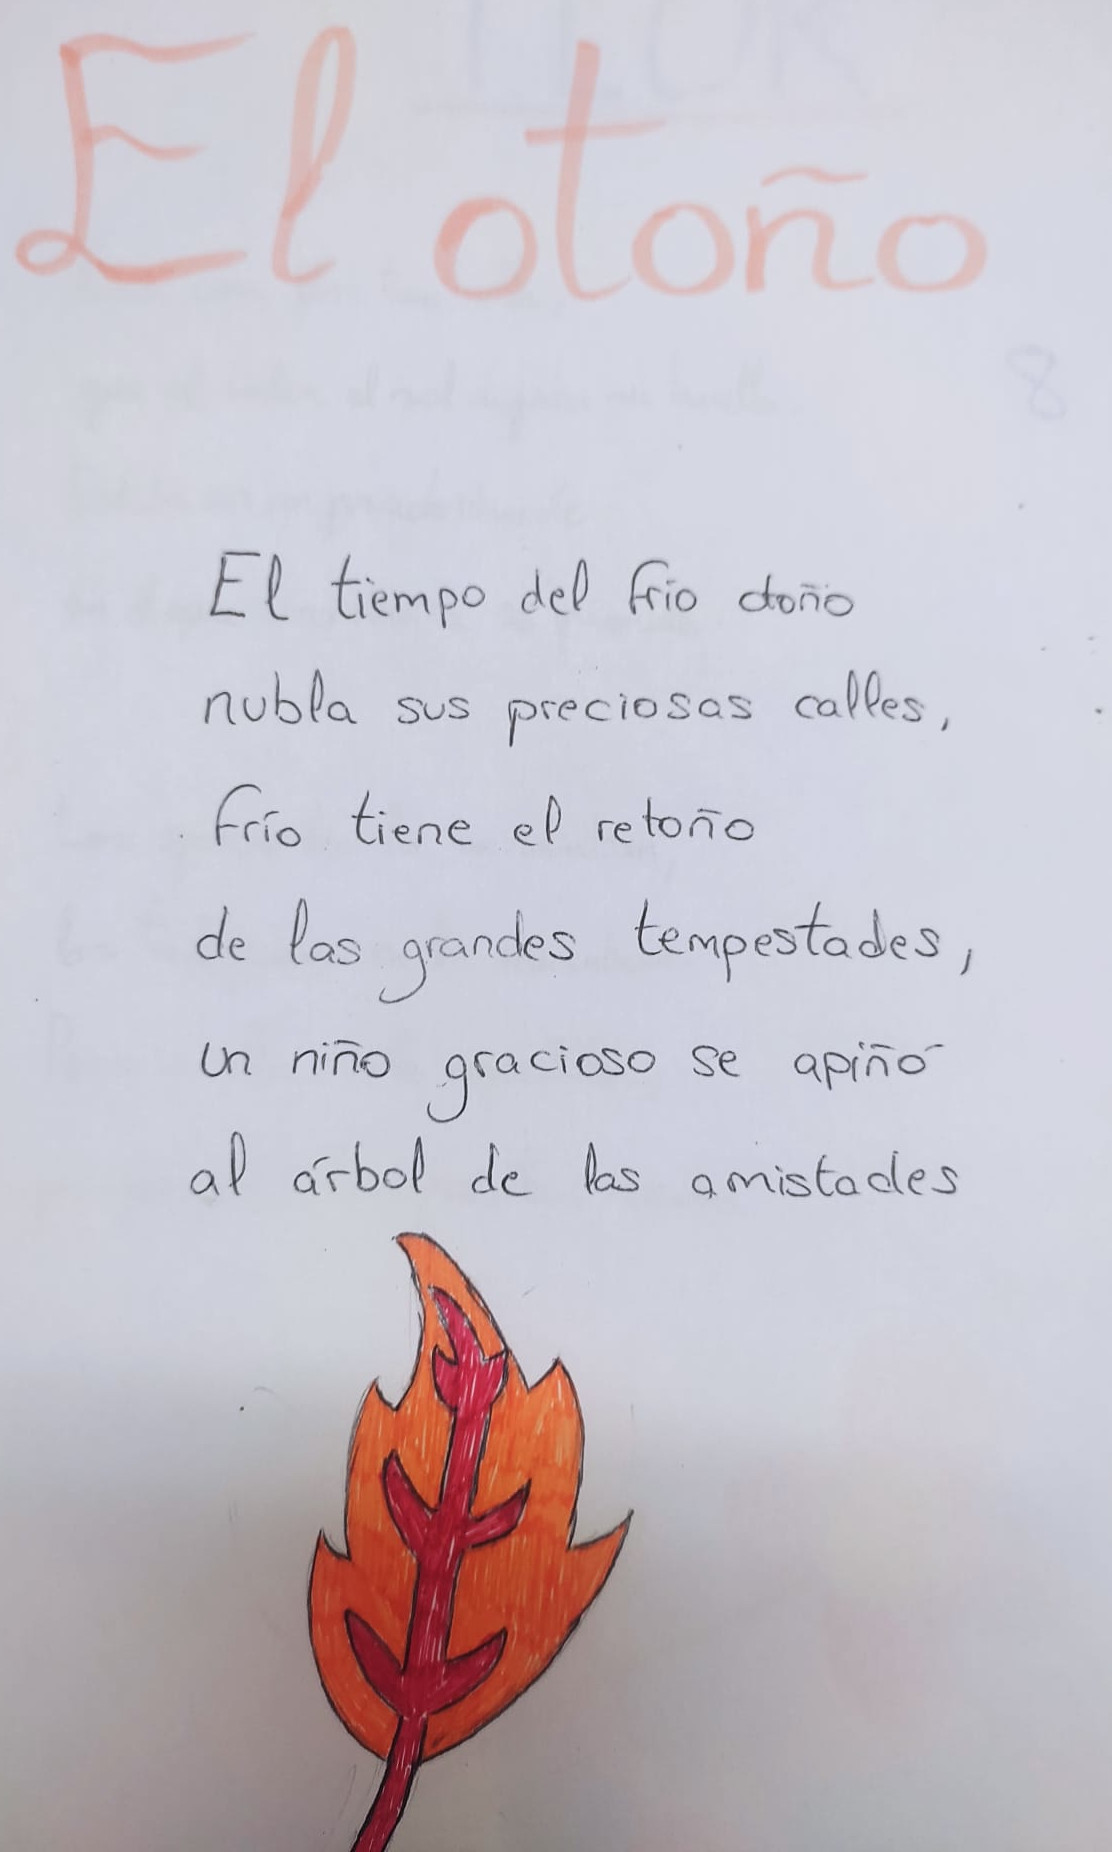 El otoño
8
El tiempo del frio otoño
nubla sus preciosas calles,
frío tiene el retoño
de las grandes tempestades,
un niño gracioso se apiñó
al árbol de las amistades